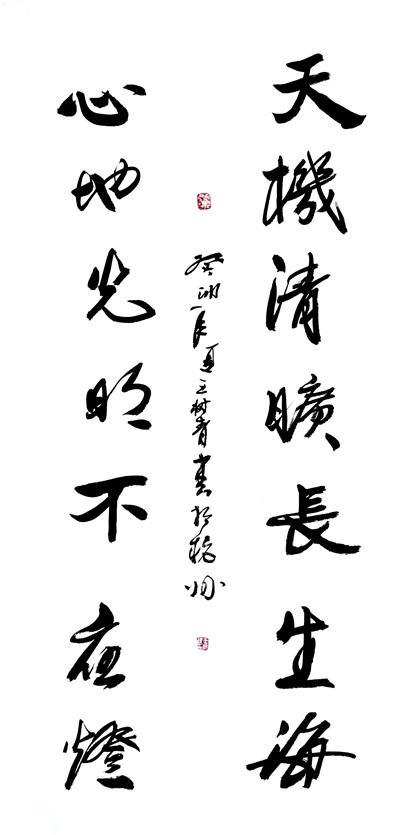 天機清曠長生海
心地光明不夜燈
癸卯年夏王树青書於杭州